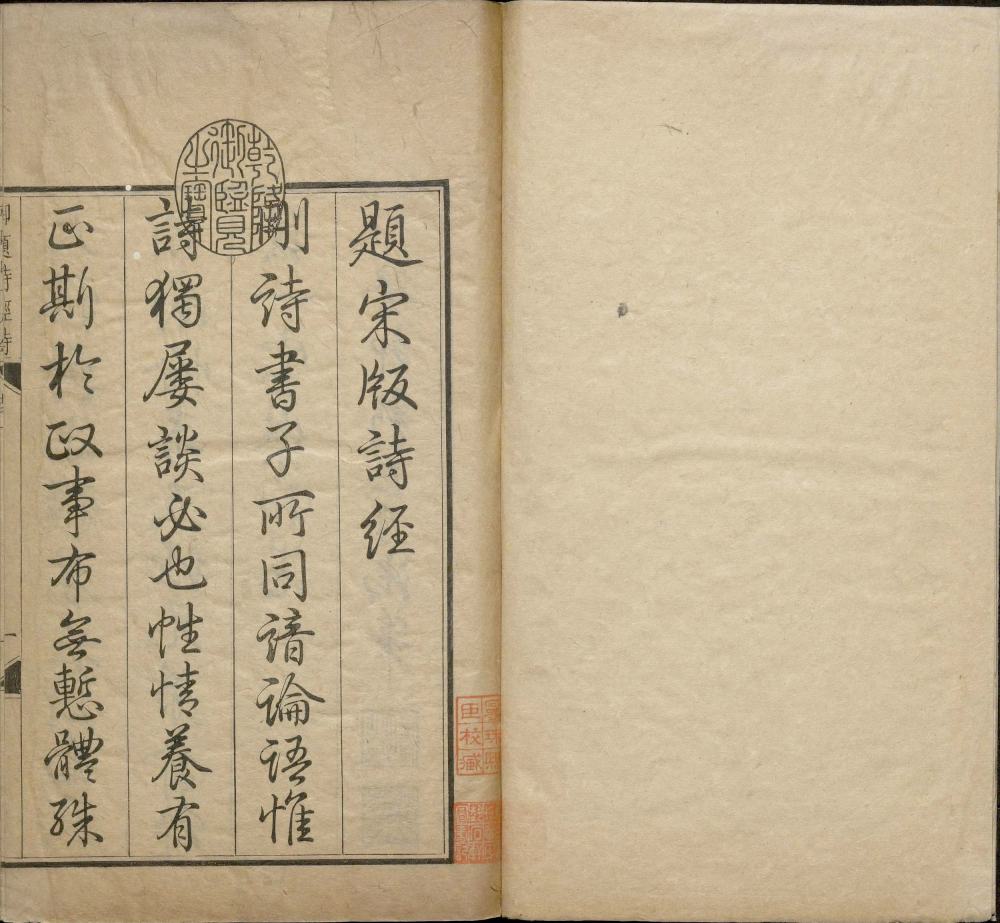 題宋版詩經
刪詩書子所同諳論語惟
詩獨屢談必也性情養有
正斯於政事布無慙體殊
乾隆
御覽
之寶